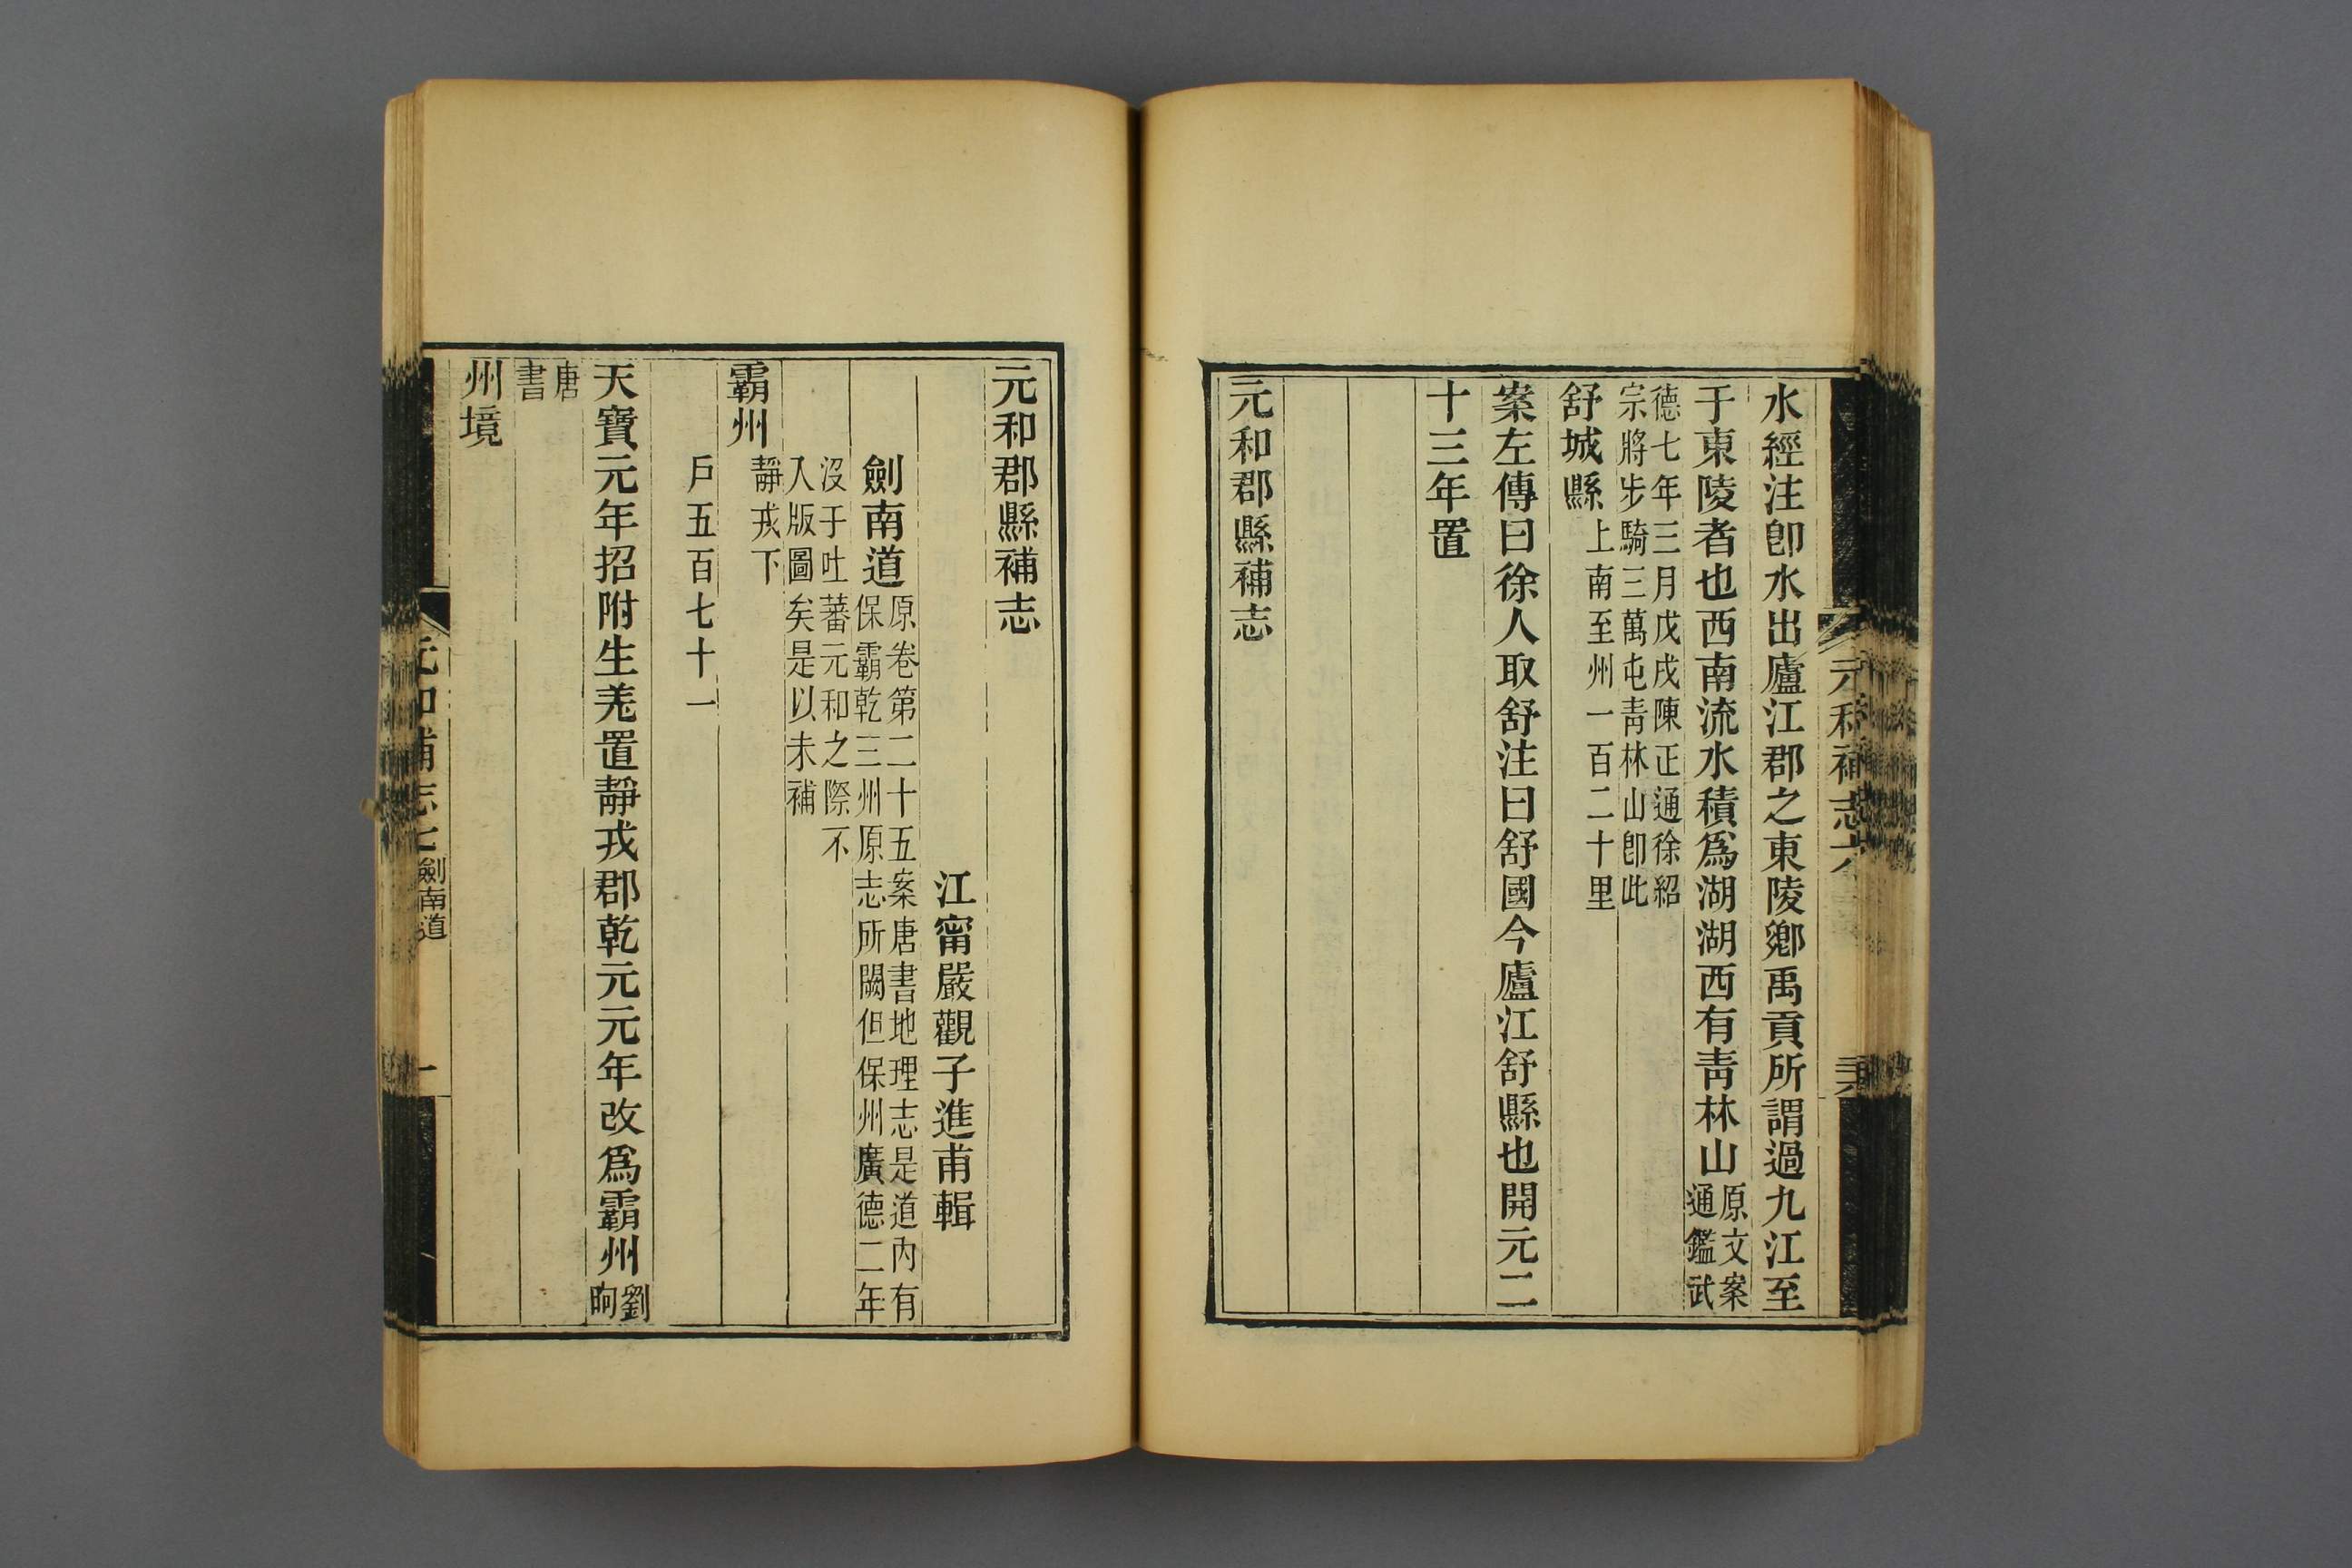 水經注卽水出廬江郡之東陵鄉禹貢所謂過九江至
于東陵者也西南流水積爲湖湖西有靑林山
原文案
通鑑武
德七年三月戊戌陳正通徐紹
宗將步騎三萬屯靑林山卽此
舒城縣
上南至州一百二十里
案左傳曰徐人取舒注曰舒國今廬江舒縣也開元二
十三年置
元和郡縣補志
元和郡縣補志
江甯嚴觀子進甫輯
劍南道
原卷第二十五案唐書地理志是道內有
保霸乾三州原志所闕但保州廣德二年
沒于吐蕃元和之際不
入版圖矣是以未補
霸州
靜戎下
戶五百七十一
天寶元年招附生羌置靜戎郡乾元元年改爲霸州
劉
昫
唐
書
州境
元和補志七
劍南道
一